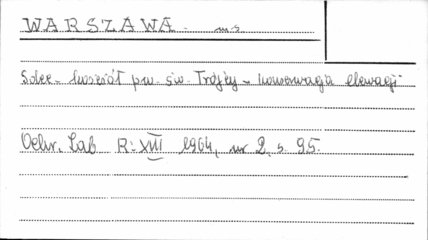 WARSZAWA - m.s.
Solec - kościół pw. św. Trójcy - konserwacja elewacji
Ochr. Zab R: XVII 1964, nr 2, s. 95.